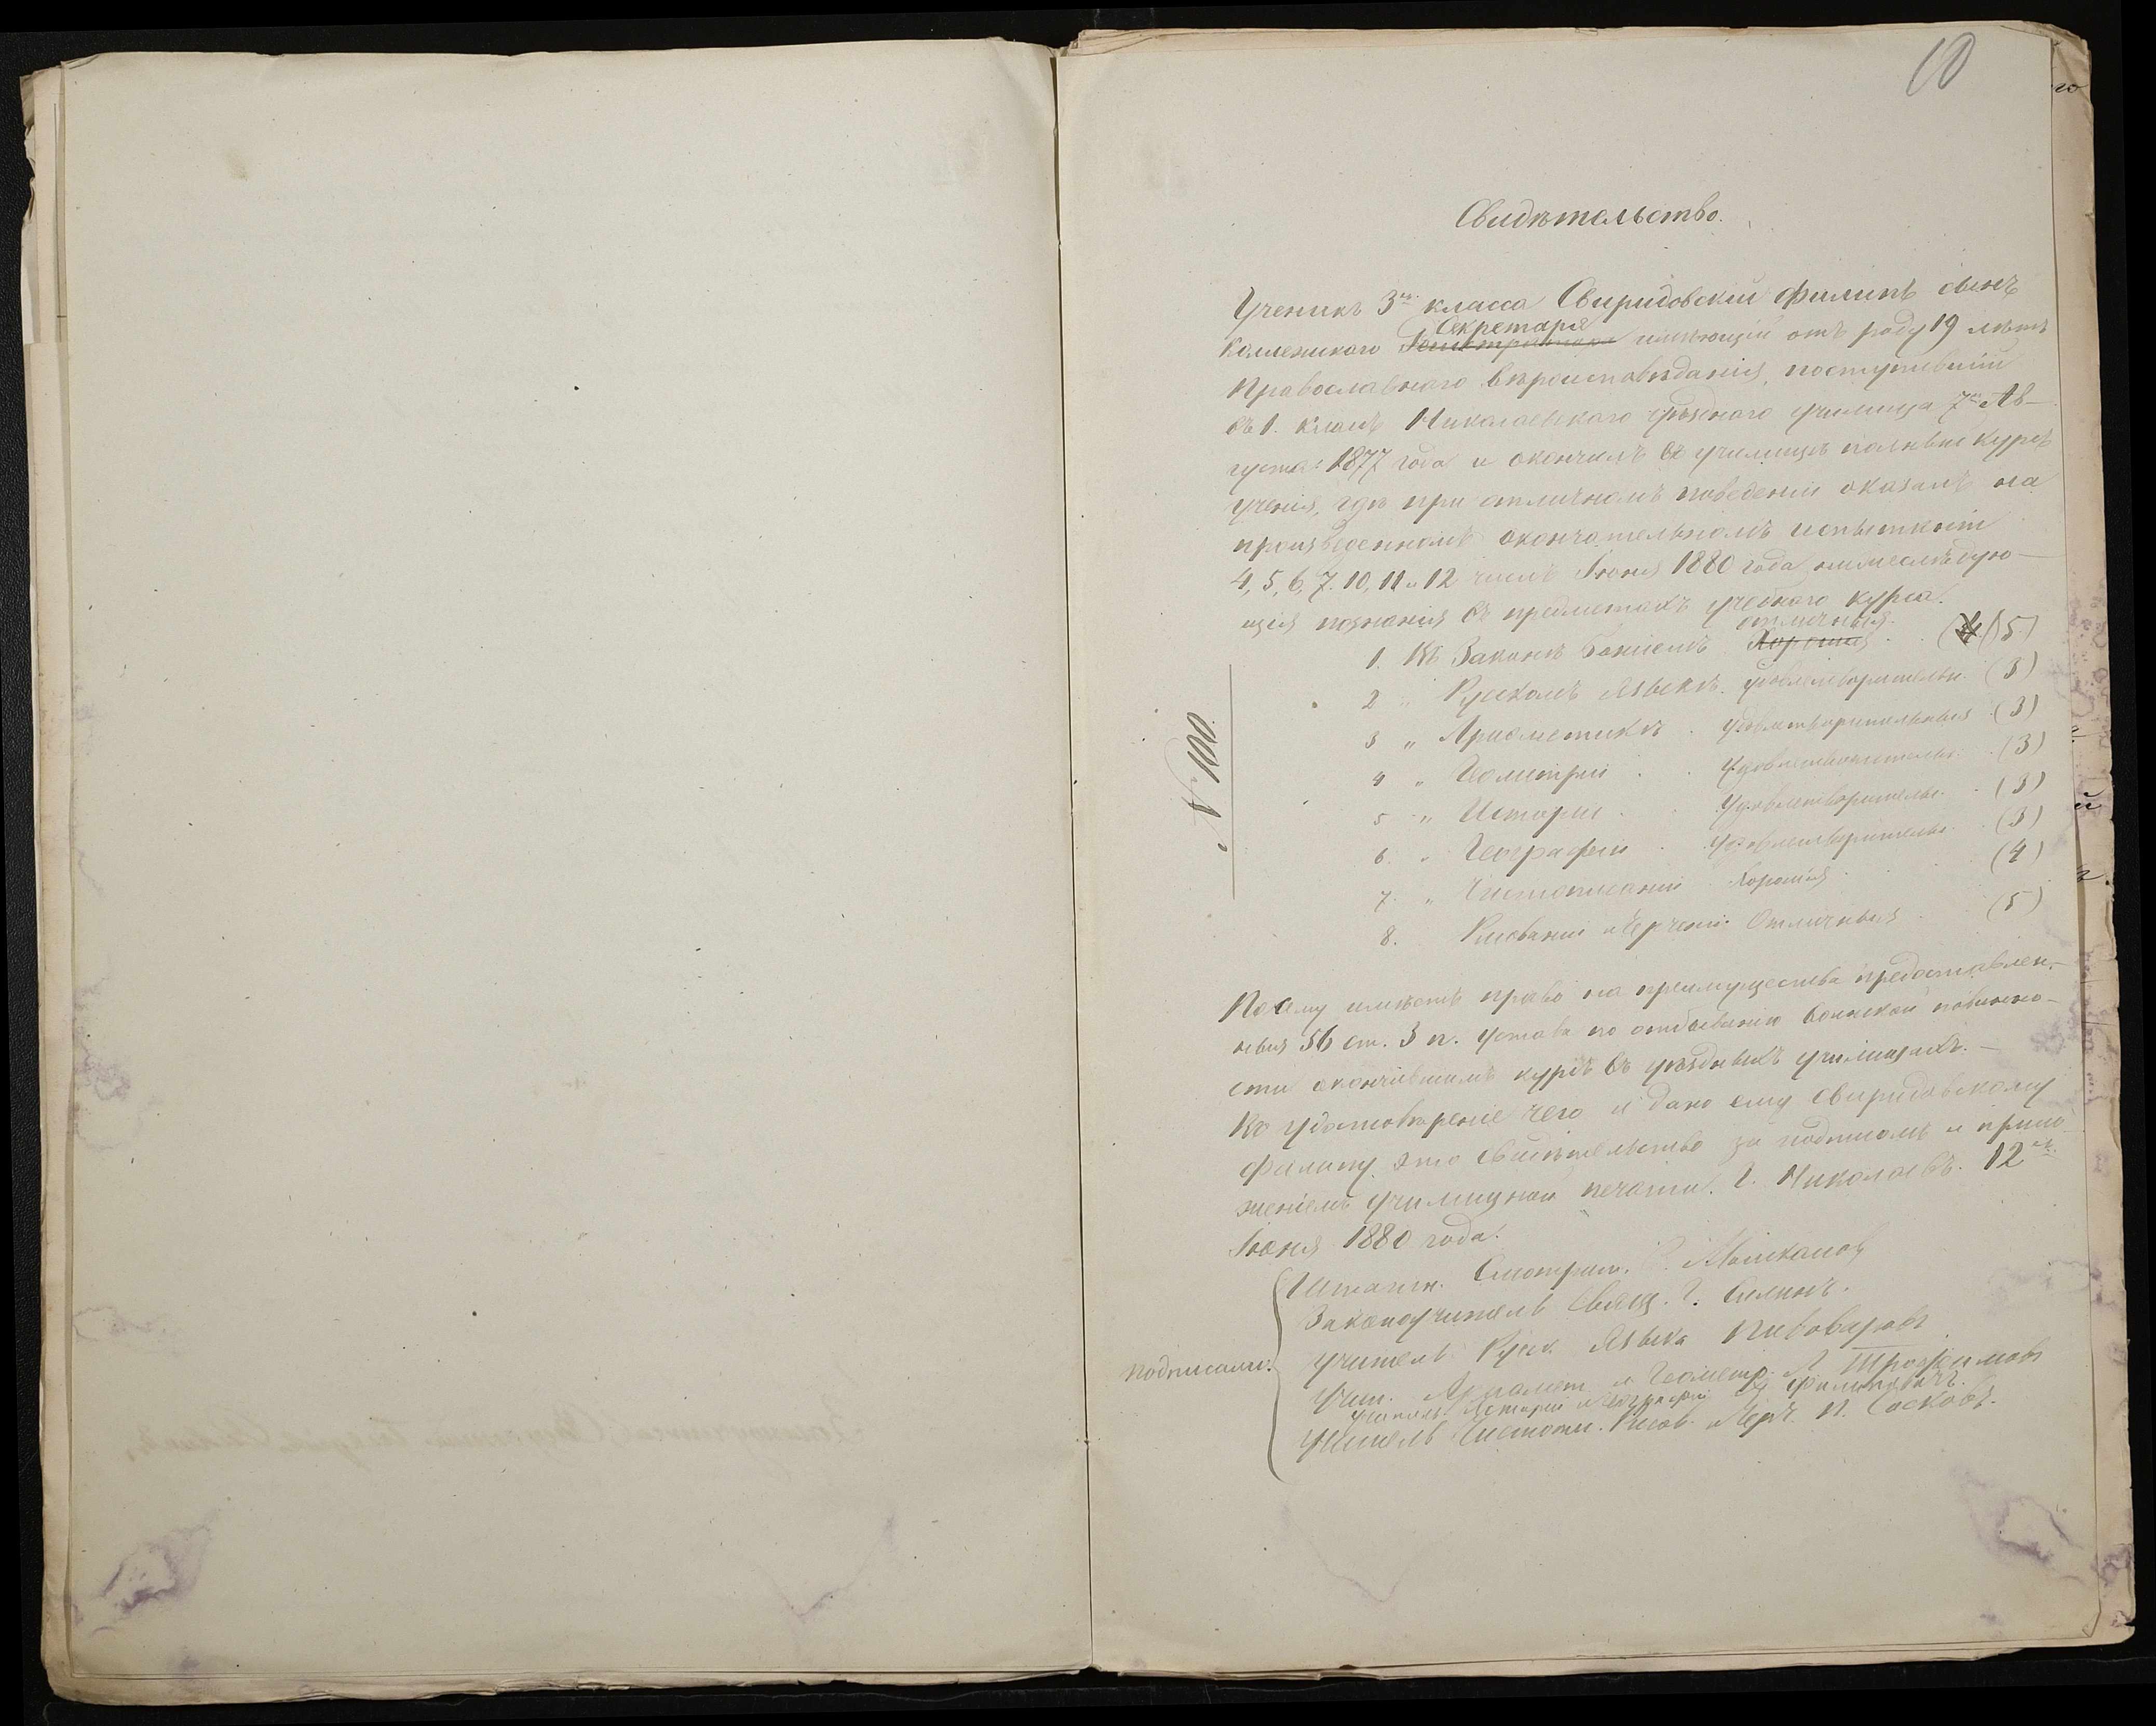 10
Свидѣтельство.
Ученикъ 3го класса Свиридовскій Филипъ сынъ
Секретаря
Коллежскаго Регистратора имѣющій отъ роду 19 лѣтъ
Православнаго вѣроисповѣданія, поступившій
въ 1. классъ Николаевскаго уѣзднаго училища 7го Ав-
густа 1877 года и окончилъ въ училищѣ полный курсъ
ученія, гдѣ при отличномъ поведеніи оказалъ на
произведенномъ окончательномъ испытаніи
4, 5, 6, 7. 10, 11 и 12 числъ Іюня 1880 года нижеслѣдую-
щія познанія въ предметахъ учебнаго курса.
отличныя.
1. Въ Законѣ Божіемъ Хорошія (4) (5)
2 " Русскомъ Языкѣ. удовлетворительн (3)
3 " Ариѳметикѣ. удовлетворительныя (3)
4 " Геометріи . . Удовлетворительн. (3)
5 " Исторіи . . Удовлетворительн. (3)
6. " Географіи . Удовлетворительн. (3)
7. " Чистописаніи Хорошія (4)
8. Рисованіи и Черченіи Отличныя . (5)
№ 100
Посему имѣетъ право на преимущества предоставлен-
ныя 56 ст. 3 п. Устава по отбыванію воинской повинно-
сти окончившимъ курсъ въ уѣздныхъ училищахъ. —
Во удостовѣреніе чего и дано ему Свиридовскому
Филипу это свидѣтельство за подписомъ и прило
женіемъ училищной печати. Г. Николаевъ. 12го
Іюня 1880 года.
Подписали:
Штатн. Смотрит.
Законоучитель Свящ. Г. Селинъ.
Учитель Русск. Языка Пивоваровъ
Учит. Ариѳмет. и Геометр. А. Трофимовъ
Учитель Исторіи и Географіи Филиповичъ.
Учитель Чистопи. Рисов. и Черч. П. Сосковъ.